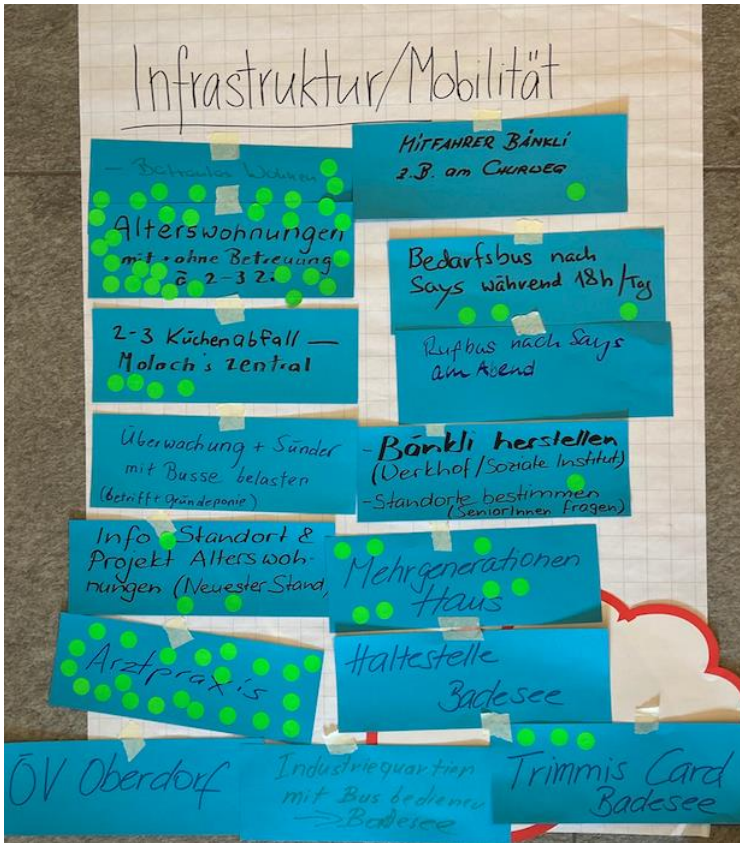 Infrastruktur/Mobilität
- Betreutes Wohnen
Alterswohnungen
mit + ohne Betreuung
à 2-3 Z.
2-3 Küchenabfall —
Moloch's zentral
Überwachung + Sünder
mit Busse belasten
(betrifft Gründeponie)
Info Standort &
Projekt Alterswoh-
nungen (Neuester Stand)
Arztpraxis
ÖV Oberdorf
MITFAHRER BÄNKLI
z.B. am CHURWEG
Bedarfsbus nach
Says während 18h/Tag
Rufbus nach Says
am Abend
- Bänkli herstellen
(Werkhof/Soziale Institut.)
- Standorte bestimmen
(SeniorInnen fragen)
Mehrgenerationen
Haus
Haltestelle
Badesee
Industriequartier
mit Bus bedienen
→ Badesee
Trimmis Card
Badesee